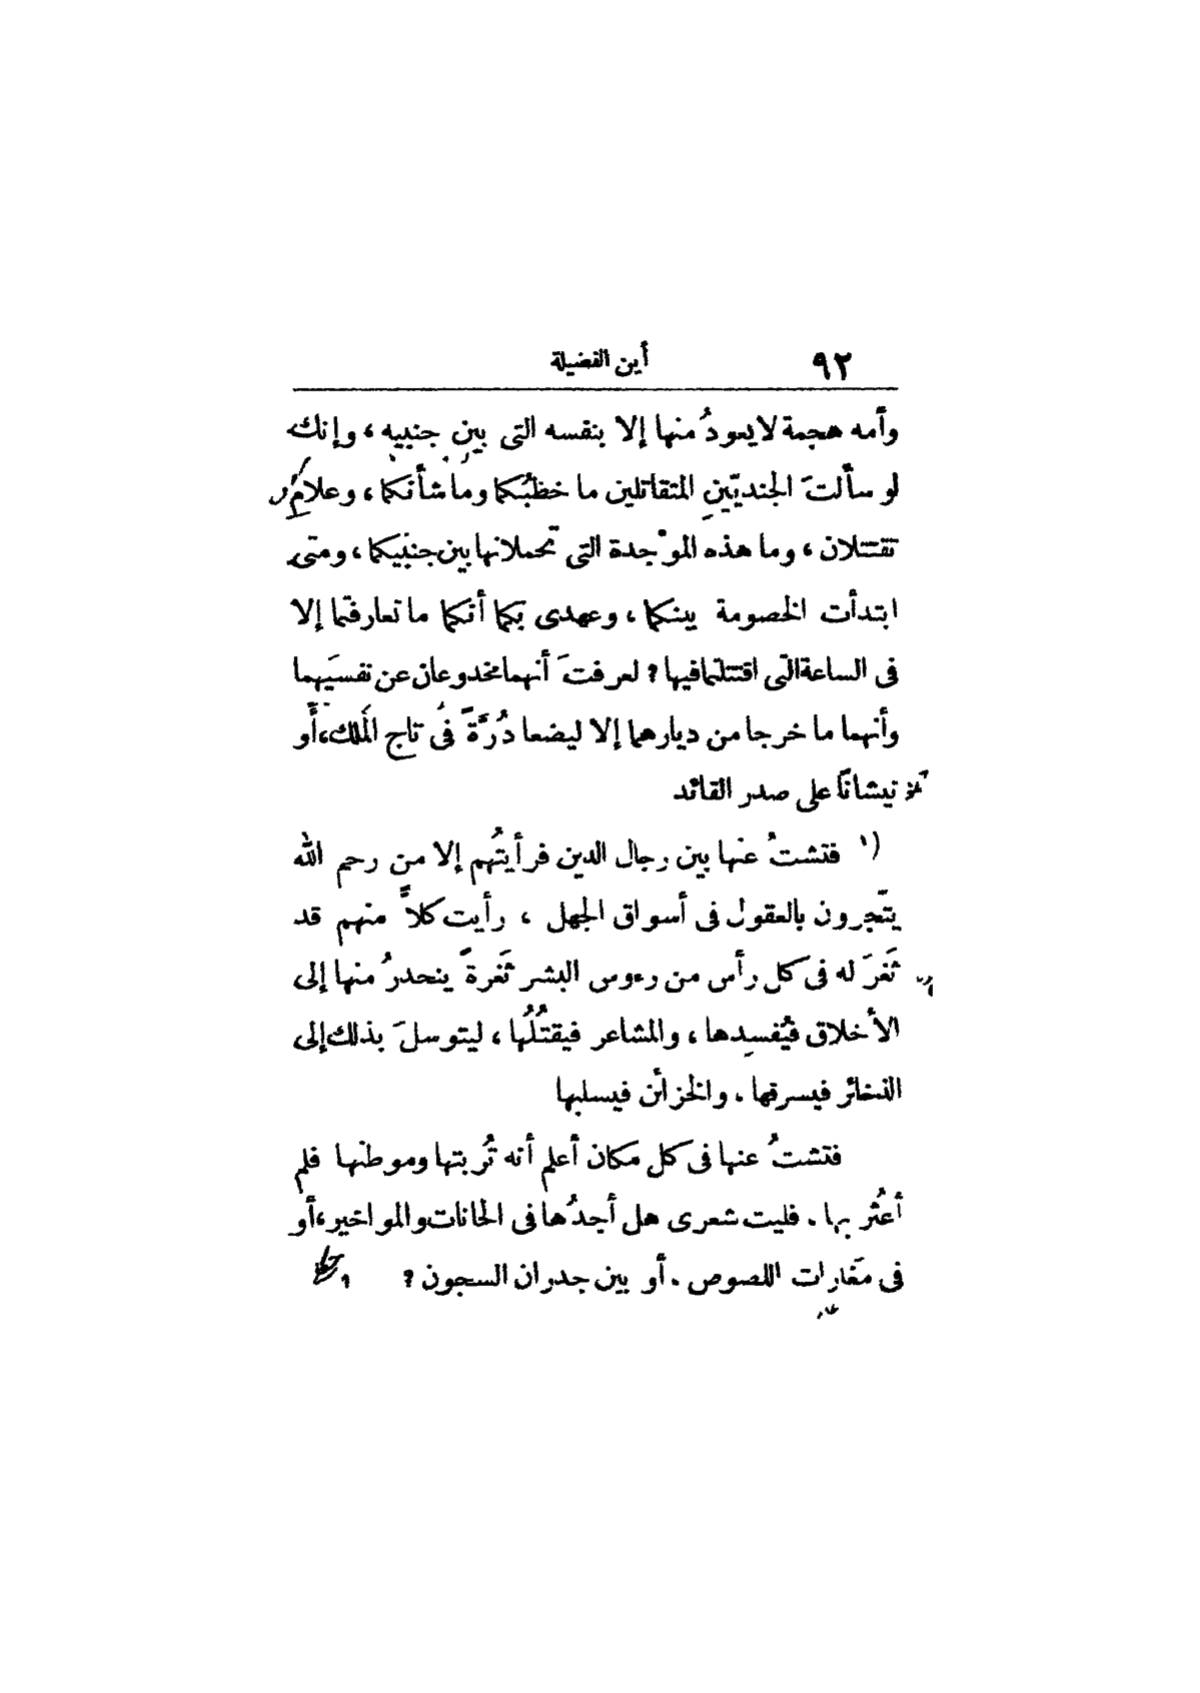 ٩٢ أين الفضيلة
وأمه هجمة لا يعودُ منها إلا بنفسه التى بين جنبيه ، وإنك
لو سألتَ الجنديّينِ المتقاتلين ما خطبُكما وما شأنكما ، وعلامَ
تقتتلان ، وما هذه الموْجدة التى تحملانها بين جنبيكما ، ومتى
ابتدأت الخصومة بينكما ، وعهدى بكما أنكما ما تعارفتما إلا
فى الساعة التى اقتتلتما فيها ؟ لعرفتَ أنهما مخدوعان عن نفسَيهما
وأنهما ما خرجا من ديارهما إلا ليضعا دُرَّةً فى تاج الملك ، أو
نيشانًا على صدر القائد
فتشتُ عنها بين رجال الدين فرأيتُهم إلا من رحم الله
يتّجرون بالعقول فى أسواق الجهل ، رأيت كلاًّ منهم قد
ثَغرَ له فى كل رأس من رءوس البشر ثَغرةً ينحدرُ منها إلى
الأخلاق فيُفسِدها ، والمشاعر فيقتُلُها ، ليتوسلَ بذلك إلى
الذخائر فيسرقها . والخزائن فيسلبها
فتشتُ عنها فى كل مكان أعلم أنه تُربتها وموطنها فلم
أعثُر بها . فليت شعرى هل أجدُها فى الحانات والمواخير ، أو
فى مَغارات اللصوص . أو بين جدران السجون ؟